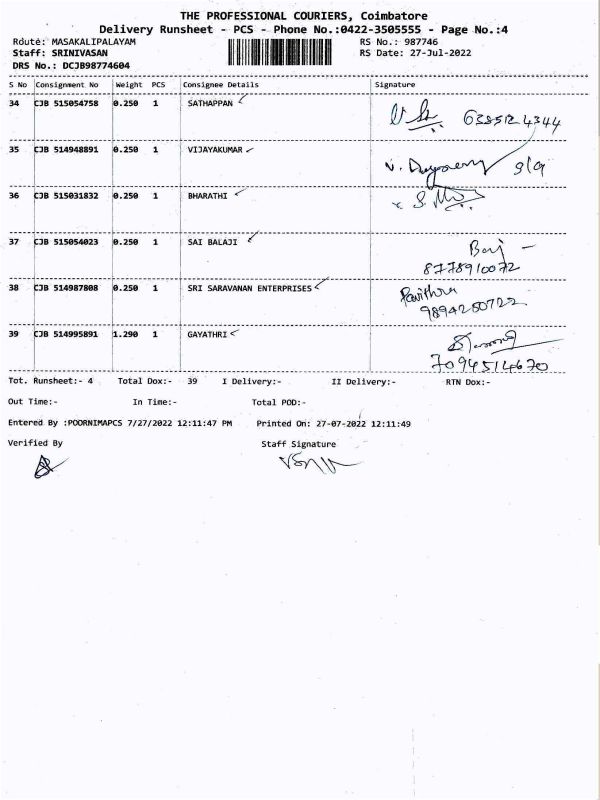 THE PROFESSIONAL COURIERS, Coimbatore
Delivery Runsheet - PCS - Phone No.:0422-3505555 - Page No.:4
Route: MASAKALIPALAYAM RS No.: 987746
Staff: SRINIVASAN RS Date: 27-Jul-2022
DRS No.: DCJB98774604
S No Consignment No Weight PCS Consignee Details Signature
34 CJB 515054758 0.250 1 SATHAPPAN
35 CJB 514948891 0.250 1 VIJAYAKUMAR 9/9
36 CJB 515031832 0.250 1 BHARATHI
37 CJB 515054023 0.250 1 SAI BALAJI
8778910072
38 CJB 514987808 0.250 1 SRI SARAVANAN ENTERPRISES Pavithra
9894280722
39 CJB 514995891 1.290 1 GAYATHRI
7094514670
Tot. Runsheet:- 4 Total Dox:- 39 I Delivery:- II Delivery:- RTN Dox:-
Out Time:- In Time:- Total POD:-
Entered By :POORNIMAPCS 7/27/2022 12:11:47 PM Printed On: 27-07-2022 12:11:49
Verified By Staff Signature